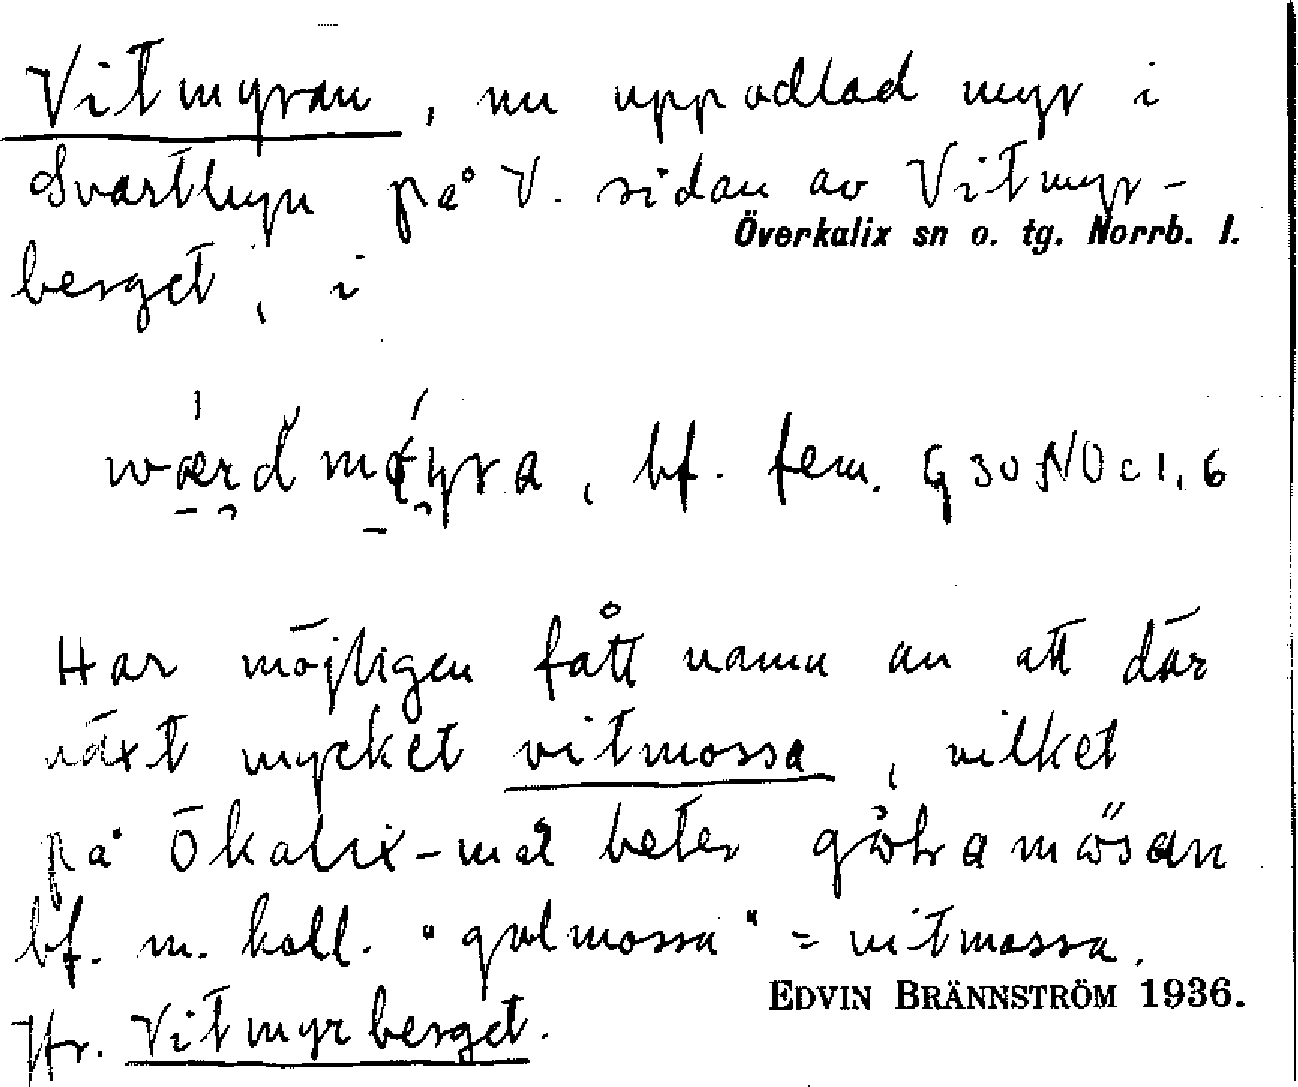 Vitmyran, nu uppodlad myr i
Svartbyn på V. sidan av Vitmyr-
Överkalix sn o. tg. Norrb. l.
berget, i
bf. fem. G 30 NO c 1, 6
Har möjligen fått namn av att där
växt mycket vitmossa, vilket
på Ökalix-mål heter
bf. m. koll. "gulmossa" = vitmossa.
EDVIN BRÄNNSTRÖM 1936.
Jfr. Vitmyrberget.